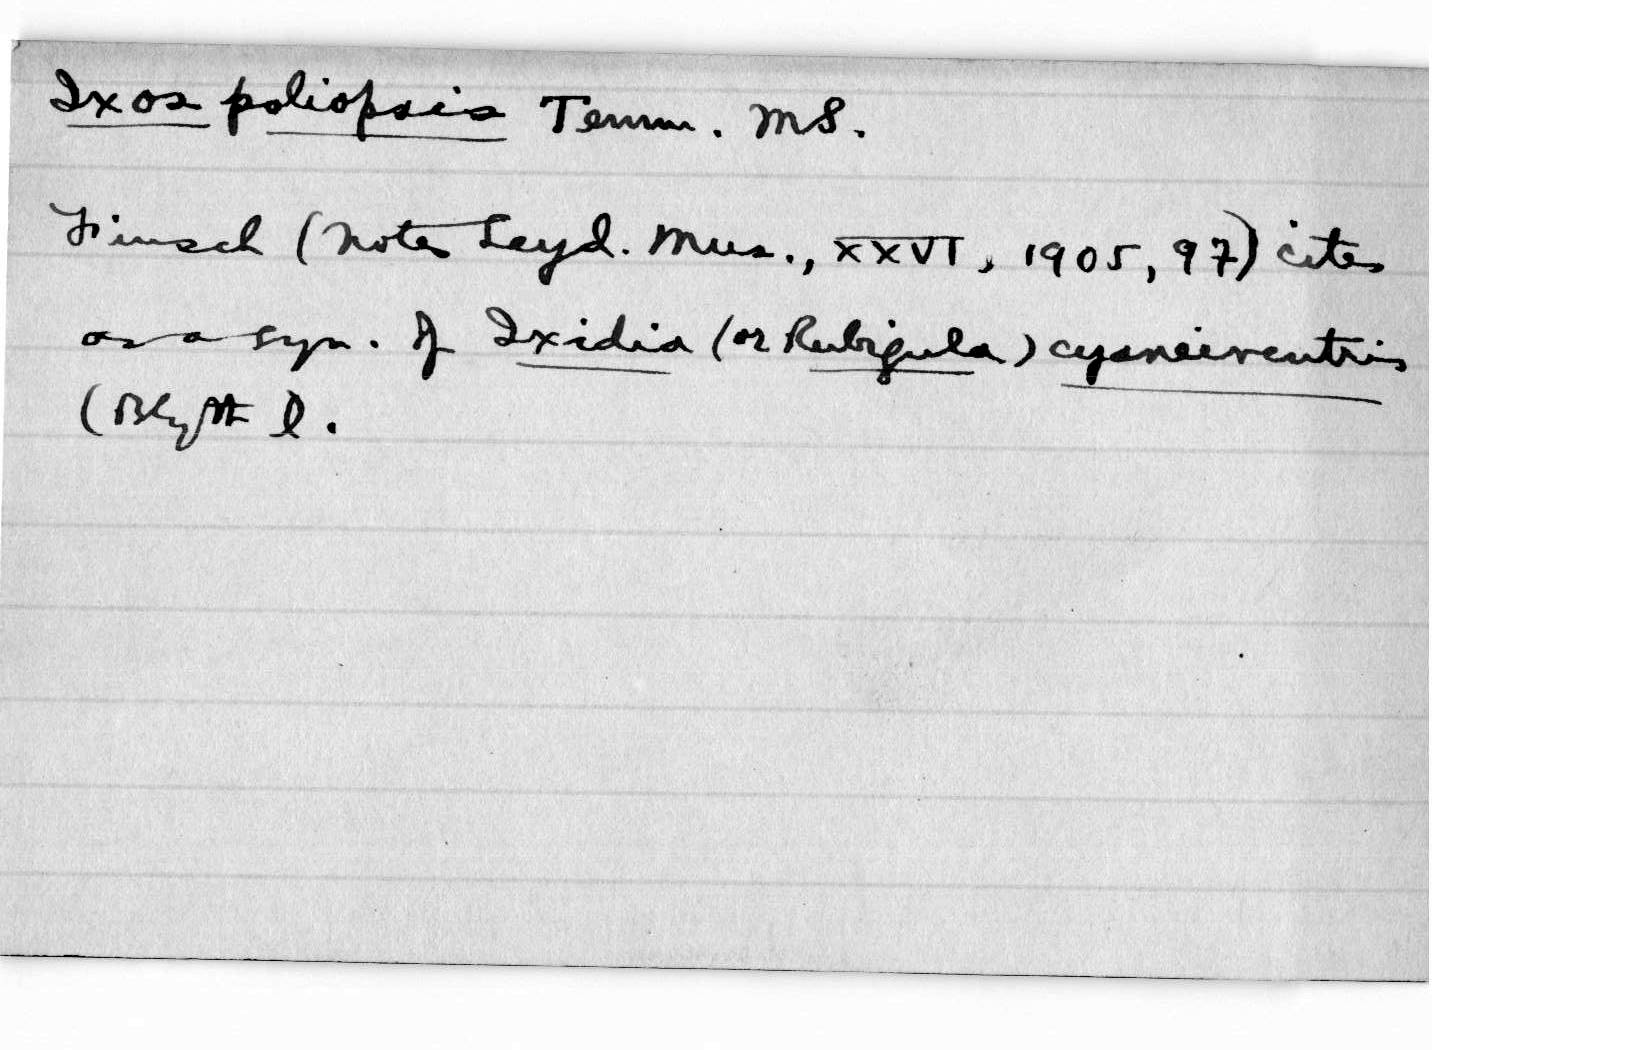 Ixos poliopsis Temm. MS.
Finsch (Notes Leyd. Mus., XXVI, 1905, 97) cites
as a syn. of Ixidia (or Rubigula) cyaneiventris
(Blyth).